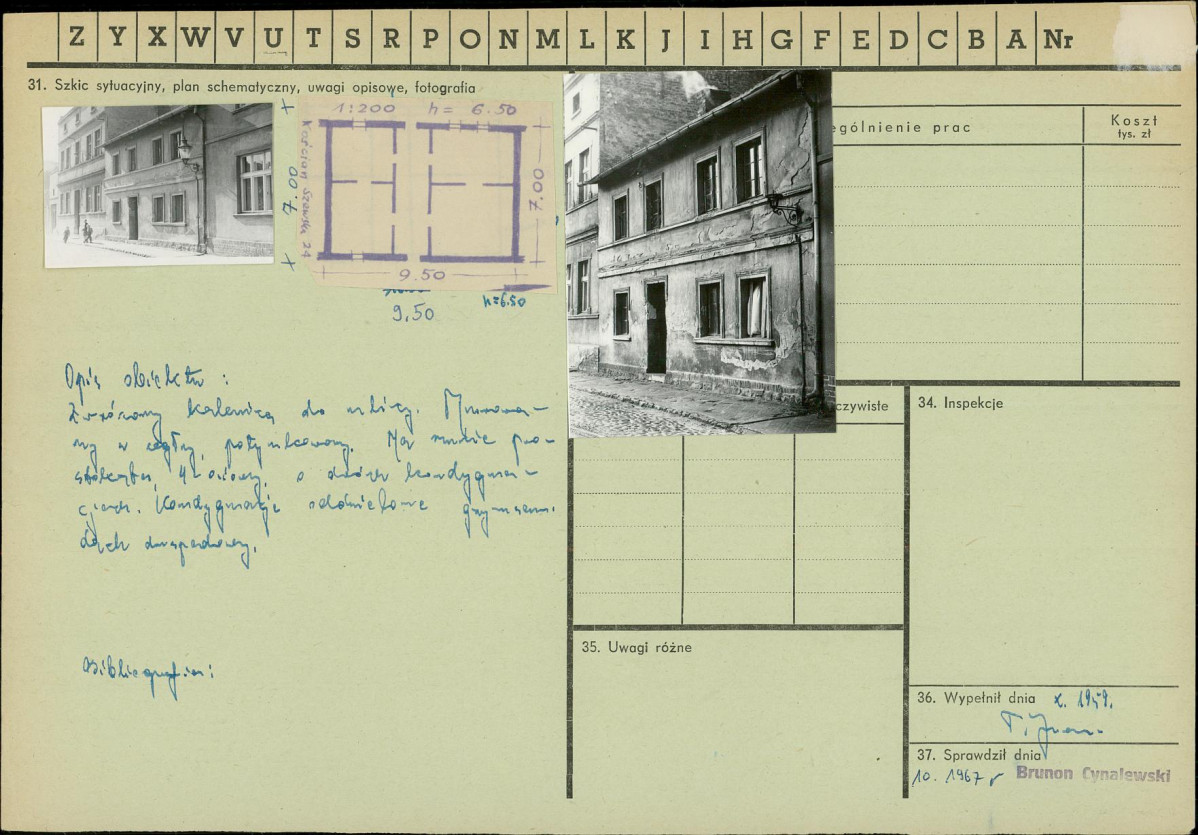 Z Y X W V U T S R P O N M L K J I H G F E D C B A Nr
31. Szkic sytuacyjny, plan schematyczny, uwagi opisowe, fotografia
1:200 h= 6.50
7.00
Kościan Szewska 24
7.00
9.50
9.50
h=6.50
Opis obiektu :
Zwrócony kalenicą do ulicy. Murowa-
ny z cegły, potynkowany. Na rzucie pro-
stokąta, 4-osiowy, o dwóch kondygna-
cjach. Kondygnacje oddzielone gzymsem.
dach dwuspadowy.
Bibliografia:
ególnienie prac
Koszt
tys. zł
czywiste
34. Inspekcje
35. Uwagi różne
36. Wypełnił dnia X. 1959.
37. Sprawdził dnia
10. 1967 r
Brunon Cynalewski